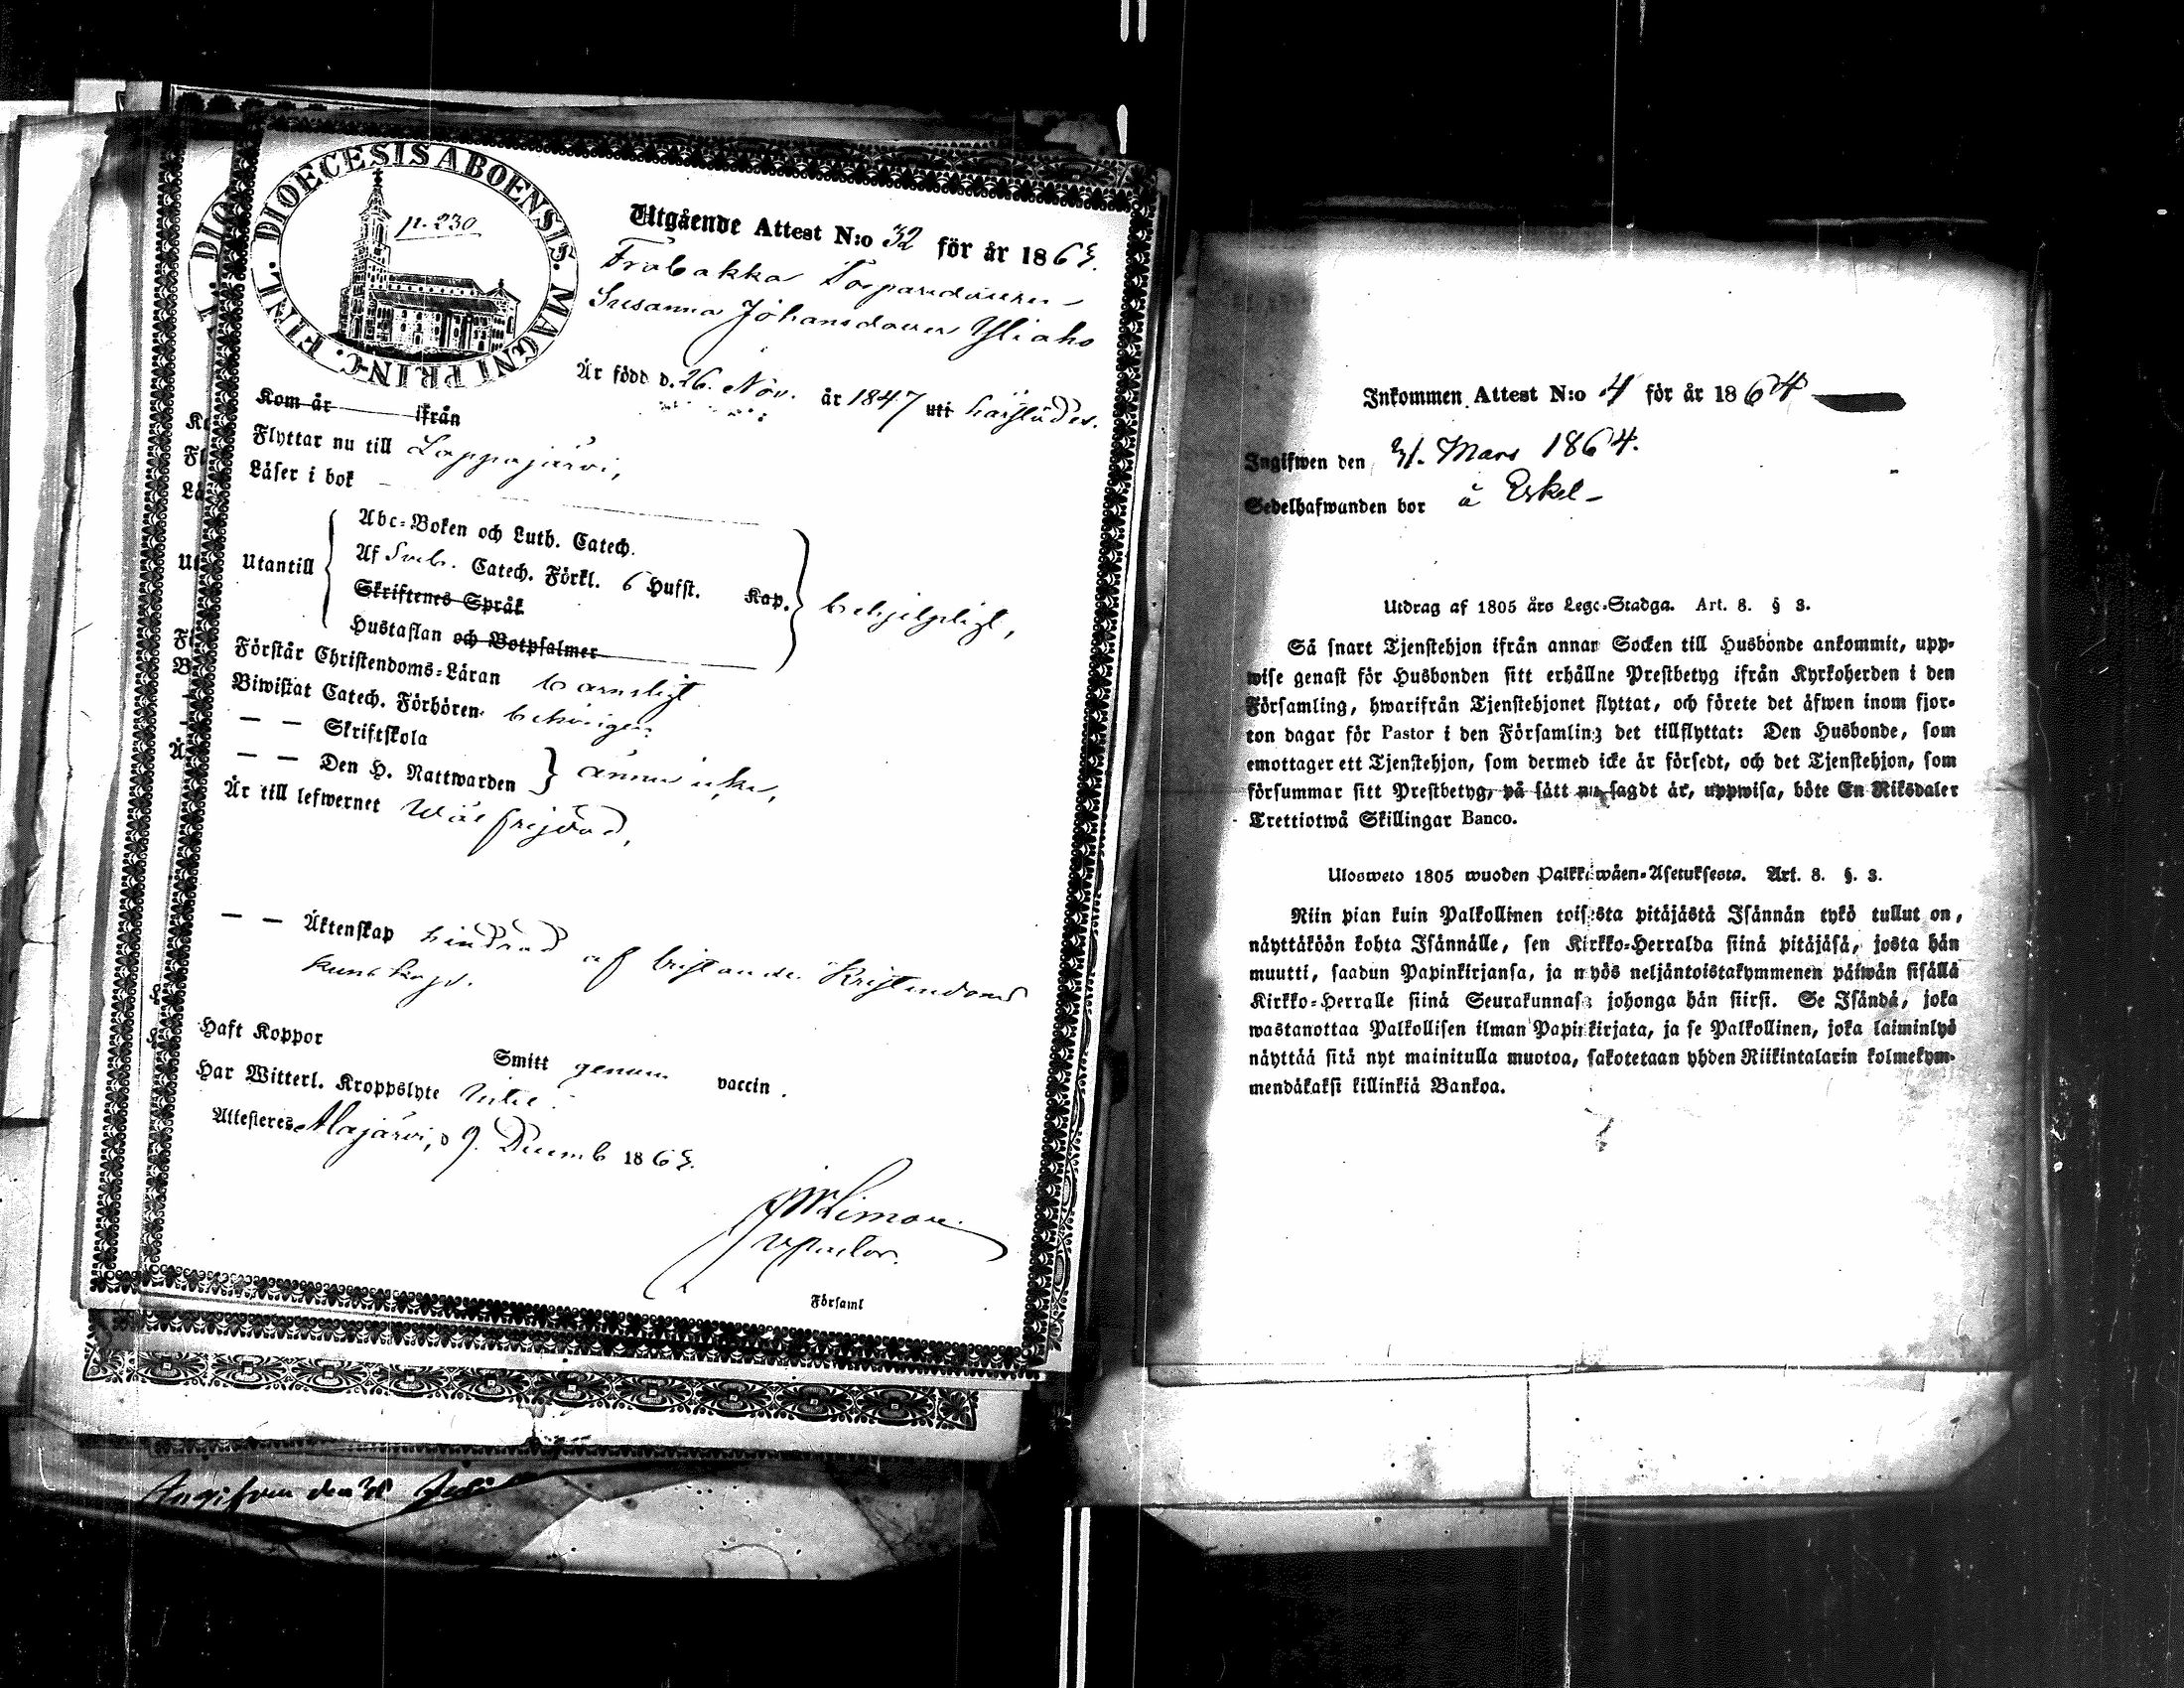 DIOECESIS ABOENSIS. MAGNI PRINC. FINL.
p. 230
Utgående Attest N:o 32 för år 1863.
Susanna Johansdotter Yliaho
Är född d. 26. Nov. år 1847 uti härstädes.
Kom år ifrån
Flyttar nu till Lappajärvi,
Läser i bok
Utantill
Abc-Boken och Luth. Catech.
Af Sveb. Catech. Förkl. 6 Hufst. Kap.
Skriftenes Språk
Hustaflan och Botpsalmer
behjelpligt,
Förstår Christendoms-Läran barnsligt
Biwistat Catech. Förhören behörigen
— — Skriftskola
— — Den H. Nattwarden
ännu icke,
Är till lefwernet Wälfrejdad,
— — Äktenskap hindrad af bristande Kristendoms
kunskap.
Haft Koppor
Smitt genom vaccin.
Har Witterl. Kroppslyte Intet.
Attesteres Alajärvi, d 9. Decemb 1863.
Församl
Ingifven den
Inkommen Attest N:o 4 för år 1864
Ingifwen den 31. Mars 1864.
Sedelhafwanden bor å Eskel-
Utdrag af 1805 års Lego-Stadga. Art. 8. § 3.
Så snart Tjenstehjon ifrån annan Socken till Husbonde ankommit, upp-
wise genast för Husbonden sitt erhållne Prestbetyg ifrån Kyrkoherden i den
Församling, hwarifrån Tjenstehjonet flyttat, och förete det äfwen inom fjor-
ton dagar för Pastor i den Församling det tillflyttat: Den Husbonde, som
emottager ett Tjenstehjon, som dermed icke är försedt, och det Tjenstehjon, som
försummar sitt Prestbetyg, på sätt nu sagdt är, uppwisa, böte En Riksdaler
Trettiotwå Skillingar Banco.
Ulosweto 1805 wuoden Palkkawäen-Asetuksesta. Art. 8. §. 3.
Niin pian kuin Palkollinen toisesta pitäjästä Isännän tykö tullut on,
näyttäköön kohta Isännälle, sen Kirkko-Herralda siinä pitäjäsä, josta hän
muutti, saadun Papinkirjansa, ja myös neljäntoistakymmenen päiwän sisällä
Kirkko-Herralle siinä Seurakunnasa johonga hän siirsi. Se Isändä, joka
wastanottaa Palkollisen ilman Papinkirjata, ja se Palkollinen, joka laiminlyö
näyttää sitä nyt mainitulla muotoa, sakotetaan yhden Riikintalarin kolmekym-
mendäkaksi killinkiä Bankoa.